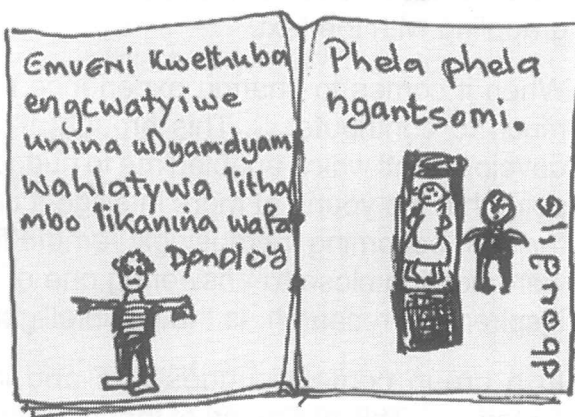 Emveni kwethuba
engcwatyiwe
unina uDyamdyam
wahlatywa litha
mbo likanina wafa
Phela phela
ngantsomi.